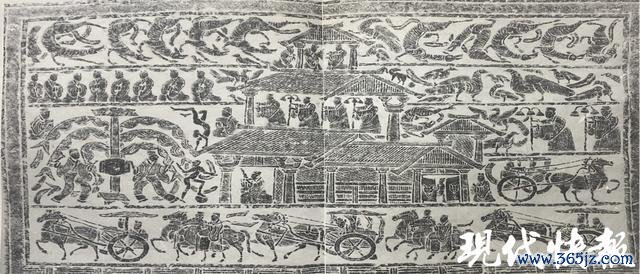 现代快报
www.365jz.com